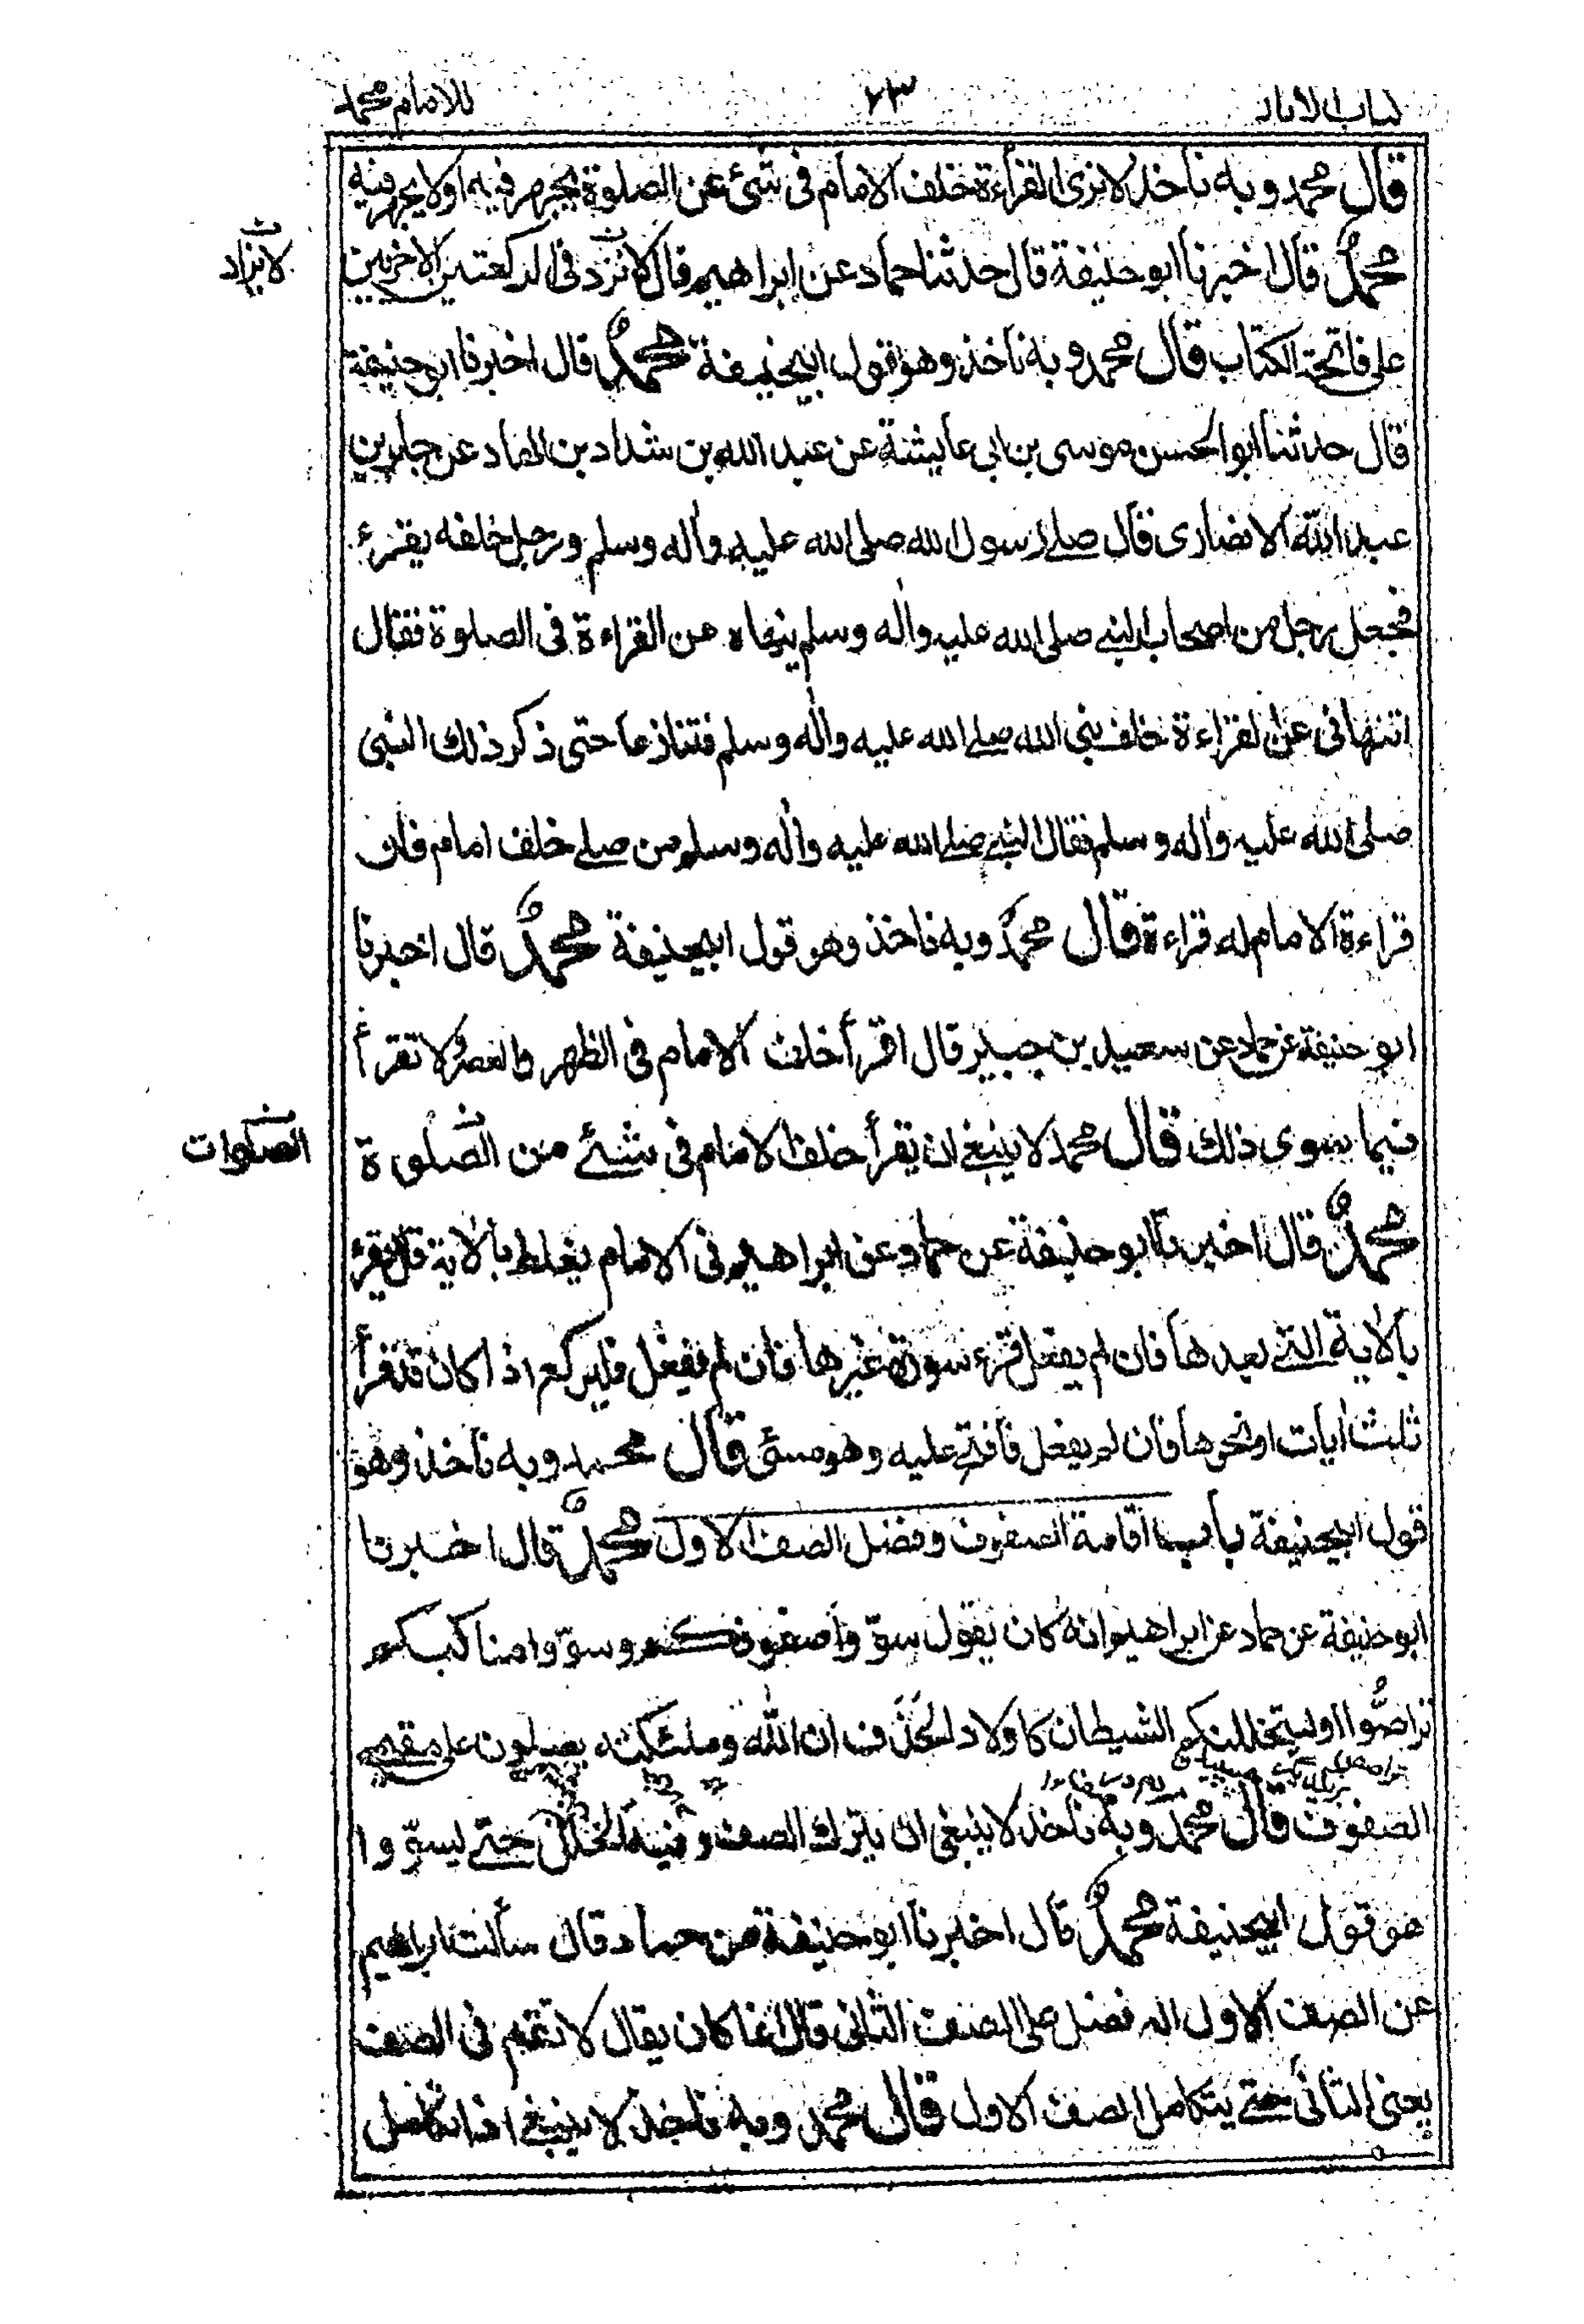 كتاب الآثار ٢٣ للامام محمد
قال محمد وبه ناخذ لا نرى القراءة خلف الامام فى شئ من الصلوة يجهر فيه او لا يجهر فيه
محمدٌ قال اخبرنا ابو حنيفة قال حدثنا حماد عن ابراهيم قال لا تزد فى الركعتين الاخريين
لا يزاد
على فاتحة الكتاب قال محمد وبه ناخذ وهو قول ابيحنيفة محمدٌ قال اخبرنا ابو حنيفة
قال حدثنا ابو الحسن موسى بن ابى عايشة عن عبد الله بن شداد بن الهاد عن جابر بن
عبد الله الانصارى قال صلے رسول الله صلى الله عليه واٰله وسلم ورجل خلفه يقرء
فجعل رجل من اصحاب النبے صلى الله عليه واٰله وسلم ينهاه عن القراءة فى الصلوة فقال
اتنهانى عن القراءة خلف نبى الله صلے الله عليه واٰله وسلم فتنازعا حتى ذكر ذلك النبى
صلى الله عليه واٰله وسلم فقال النبے صلے الله عليه واٰله وسلم من صلے خلف امام فان
قراءة الامام له قراءة قال محمد وبه ناخذ وهو قول ابيحنيفة محمدٌ قال اخبرنا
ابو حنيفة عن حماد عن سعيد بن جبير قال اقرأ خلف الامام فى الظهر والعصر ولا تقرأ
فيما سوى ذلك قال محمد لا ينبغى ان يقرأ خلف الامام فى شئے من الصلوة
الصلوات
محمدٌ قال اخبرنا ابو حنيفة عن حماد عن ابراهيم فى الامام يغلط بالاية قال يقرء
بالاٰية التے بعدها فان لم يفعل قرء سورة غيرها فان لم يفعل فليركع اذا كان قد قرأ
ثلث اٰيات او نحوها فان لم يفعل فافتح عليه وهو مسئ قال محمد وبه ناخذ وهو
قول ابيحنيفة باب اقامة الصفوف وفضل الصف الاول محمدٌ قال اخبرنا
ابو حنيفة عن حماد عن ابراهيم انه كان يقول سوّوا صفوفكم وسوّوا مناكبكم
تراصُّوا او ليتخللنكم الشيطان كاولاد الحَذَف ان الله وملئكته يصلون على مقيمى
الصفوف قال محمد وبه ناخذ لا ينبغى ان يترك الصف وفيه الخلل حتے يسوّوا
هو قول ابيحنيفة محمدٌ قال اخبرنا ابو حنيفة عن حماد قال سألت ابراهيم
عن الصف الاول اله فضل على الصف الثانى قال انما كان يقال لا تقم فى الصف
يعنى الثانى حتے يتكامل الصف الاول قال محمد وبه ناخذ لا ينبغى اذا تكامل